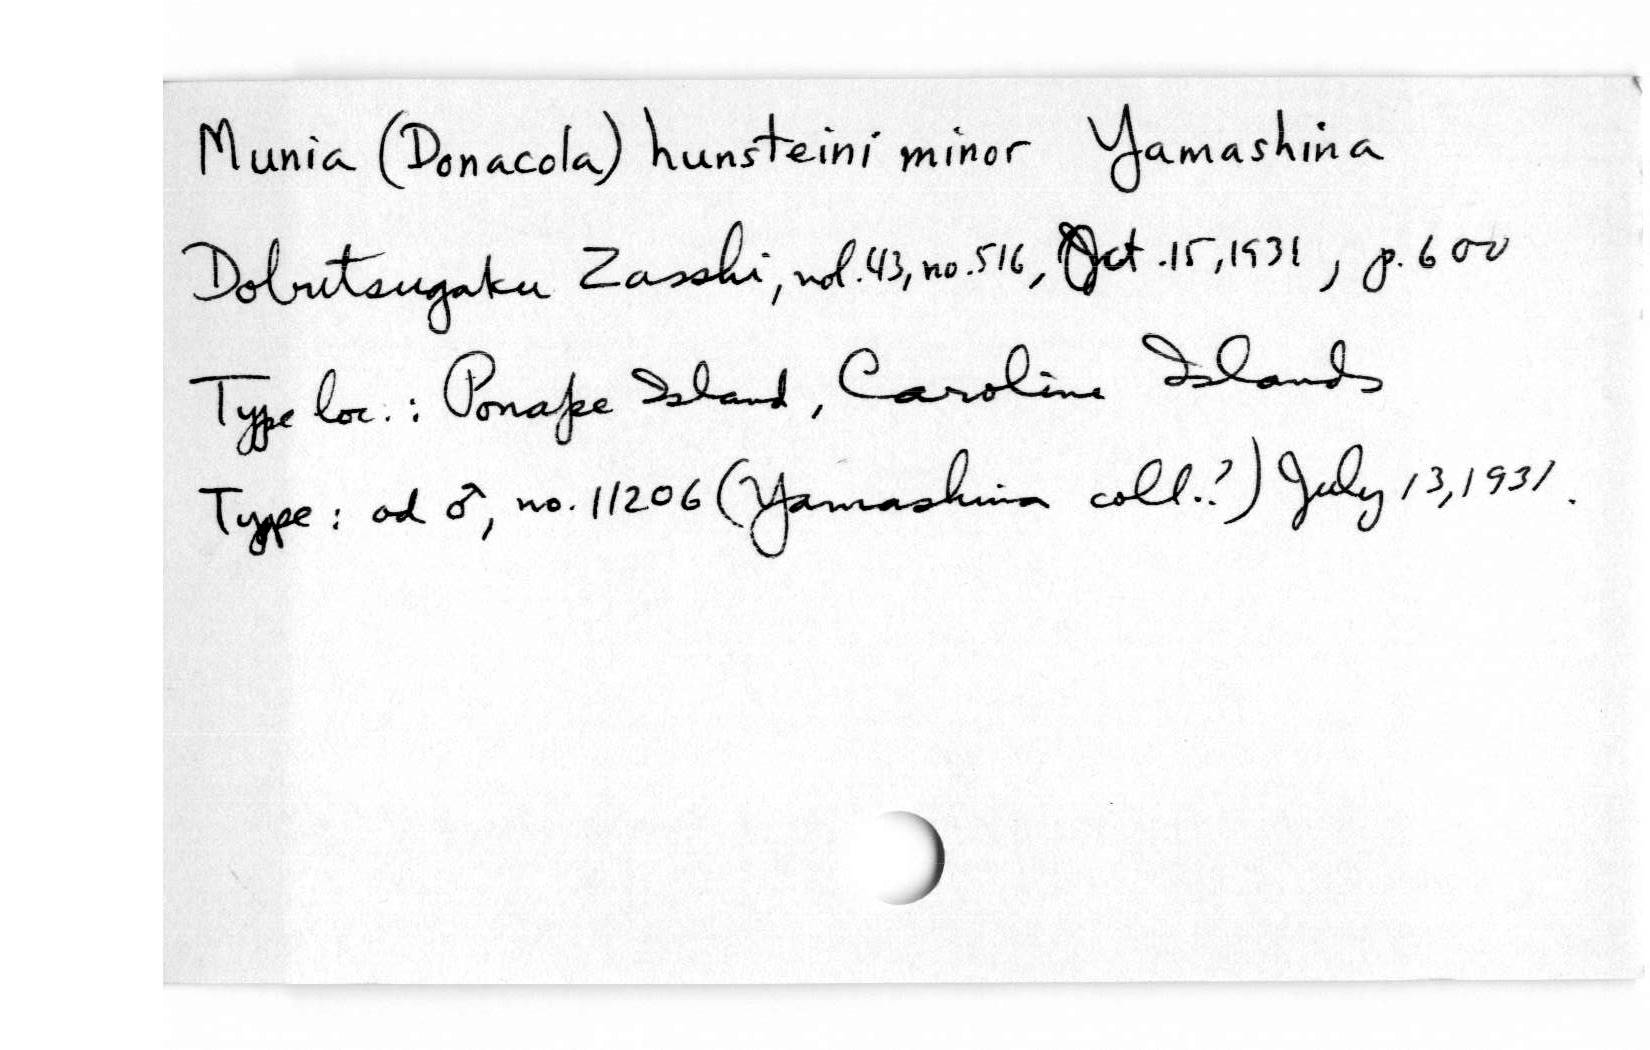 Munia (Donacola) hunsteini minor Yamashina
Dobutsugaku Zasshi, vol. 43, no. 516, Oct. 15, 1931, p. 600
Type loc.: Ponape Island, Caroline Islands
Type: ad ♂, no. 11206 (Yamashina coll.?) July 13, 1931.